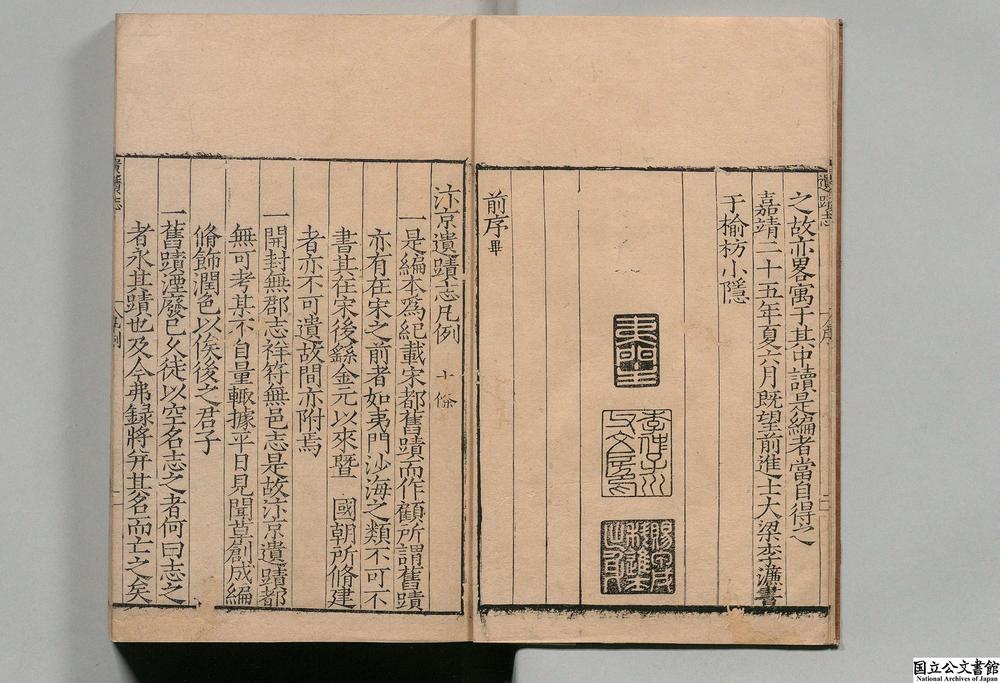 之故亦畧寓于其中讀是編者當自得之
嘉靖二十五年夏六月既望前進士大梁李濂書
于榆枋小隱
前序畢
汴京遺蹟志凡例 十條
一是編本爲紀載宋都舊蹟而作顧所謂舊蹟
亦有在宋之前者如夷門沙海之類不可不
書其在宋後繇金元以來暨 國朝所脩建
者亦不可遺故間亦附焉
一開封無郡志祥符無邑志是故汴京遺蹟都
無可考某不自量輙據平日見聞草創成編
脩飾潤色以俟後之君子
一舊蹟湮廢已久徒以空名志之者何曰志之
者永其蹟也及今弗録將并其名而亡之矣
国立公文書館
National Archives of Japan